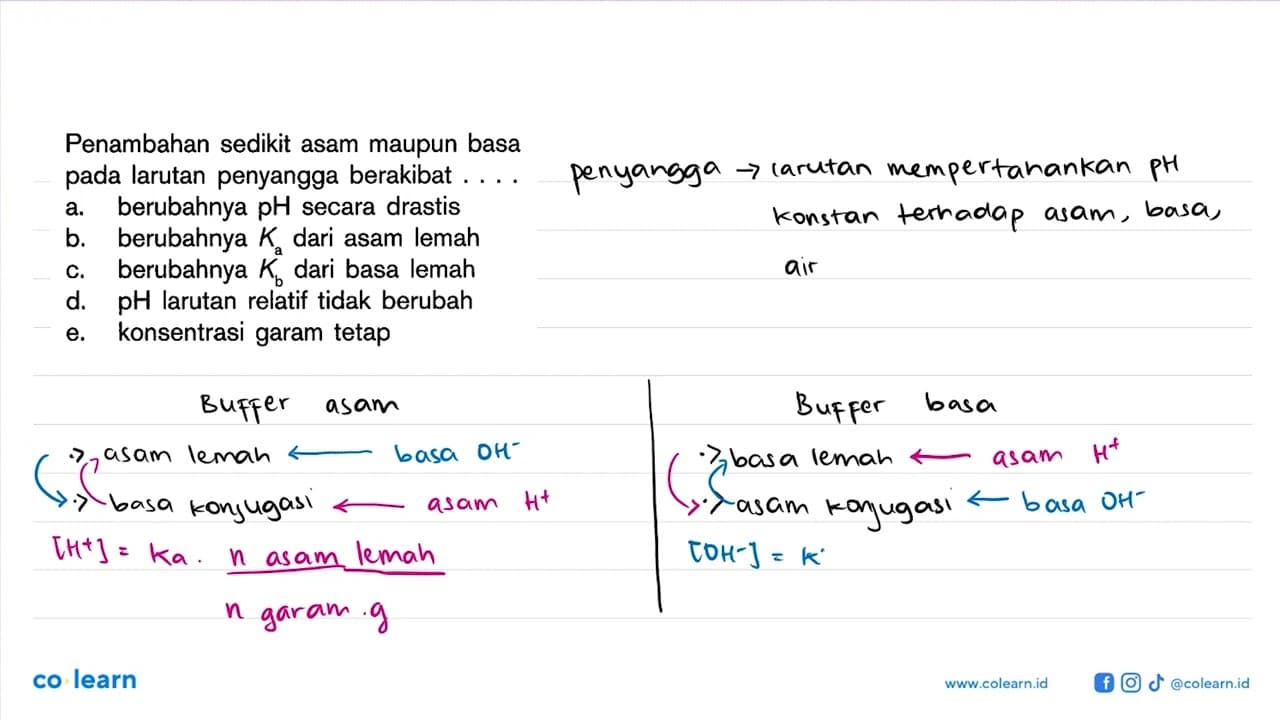 Penambahan sedikit asam maupun basa
pada larutan penyangga berakibat . . . .
a. berubahnya pH secara drastis
b. berubahnya Ka dari asam lemah
c. berubahnya Kb dari basa lemah
d. pH larutan relatif tidak berubah
e. konsentrasi garam tetap
penyangga → larutan mempertahankan pH
konstan terhadap asam, basa,
air
Buffer asam
asam lemah ← basa OH⁻
basa konjugasi ← asam H⁺
[H⁺] = Ka . n asam lemah
n garam . g
Buffer basa
basa lemah ← asam H⁺
asam konjugasi ← basa OH⁻
[OH⁻] = K
co learn
www.colearn.id
@colearn.id